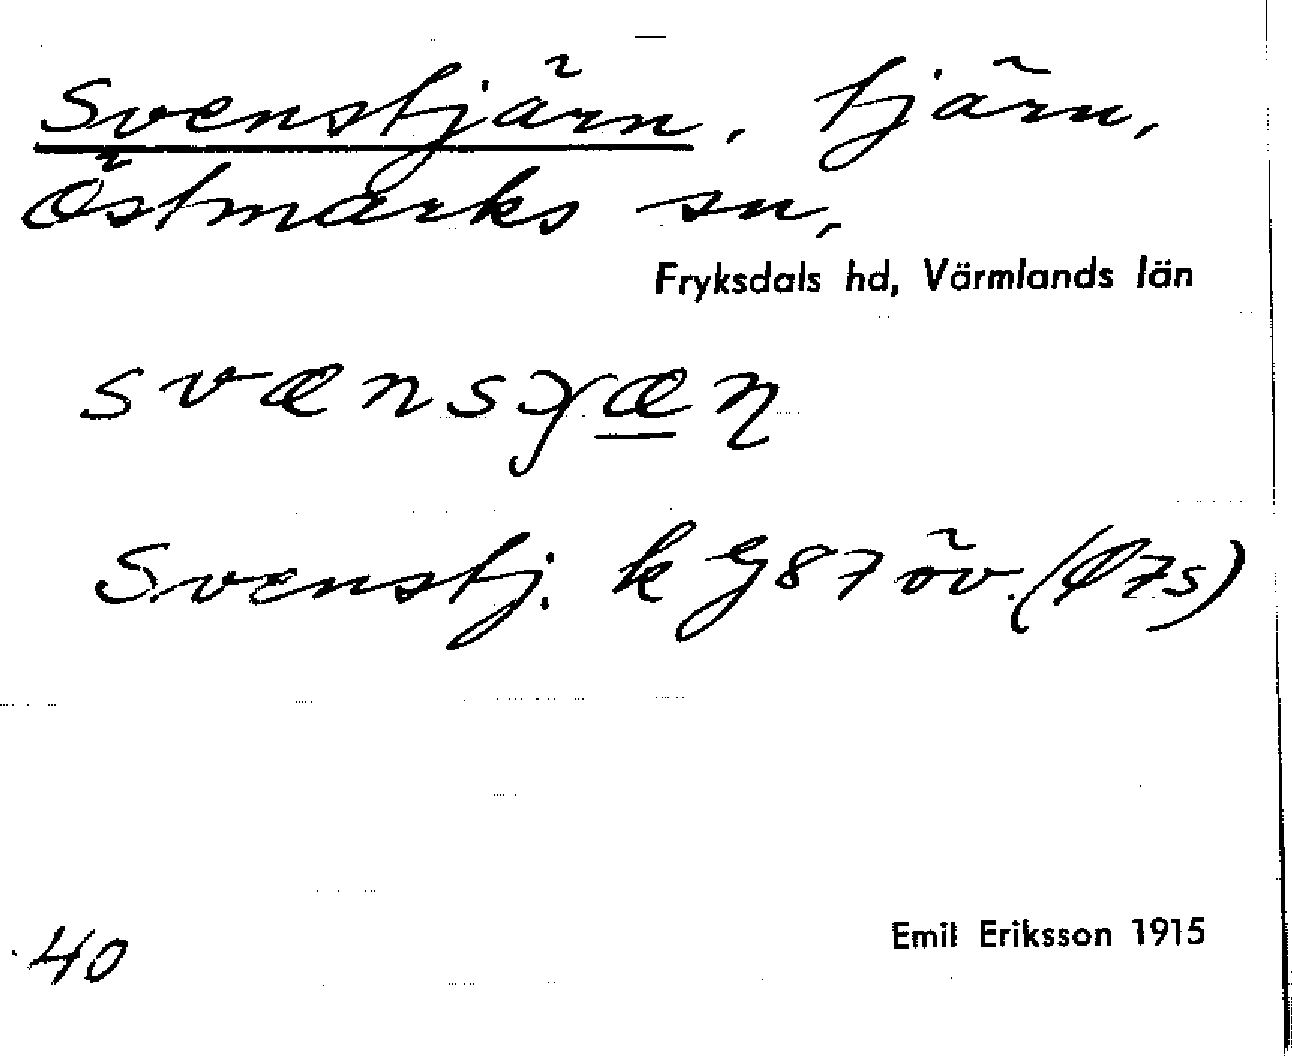 Svenstjärn, tjärn,
Östmarks sn,
Fryksdals hd, Värmlands län
Svenstj. k 87 öv.
Emil Eriksson 1915
40